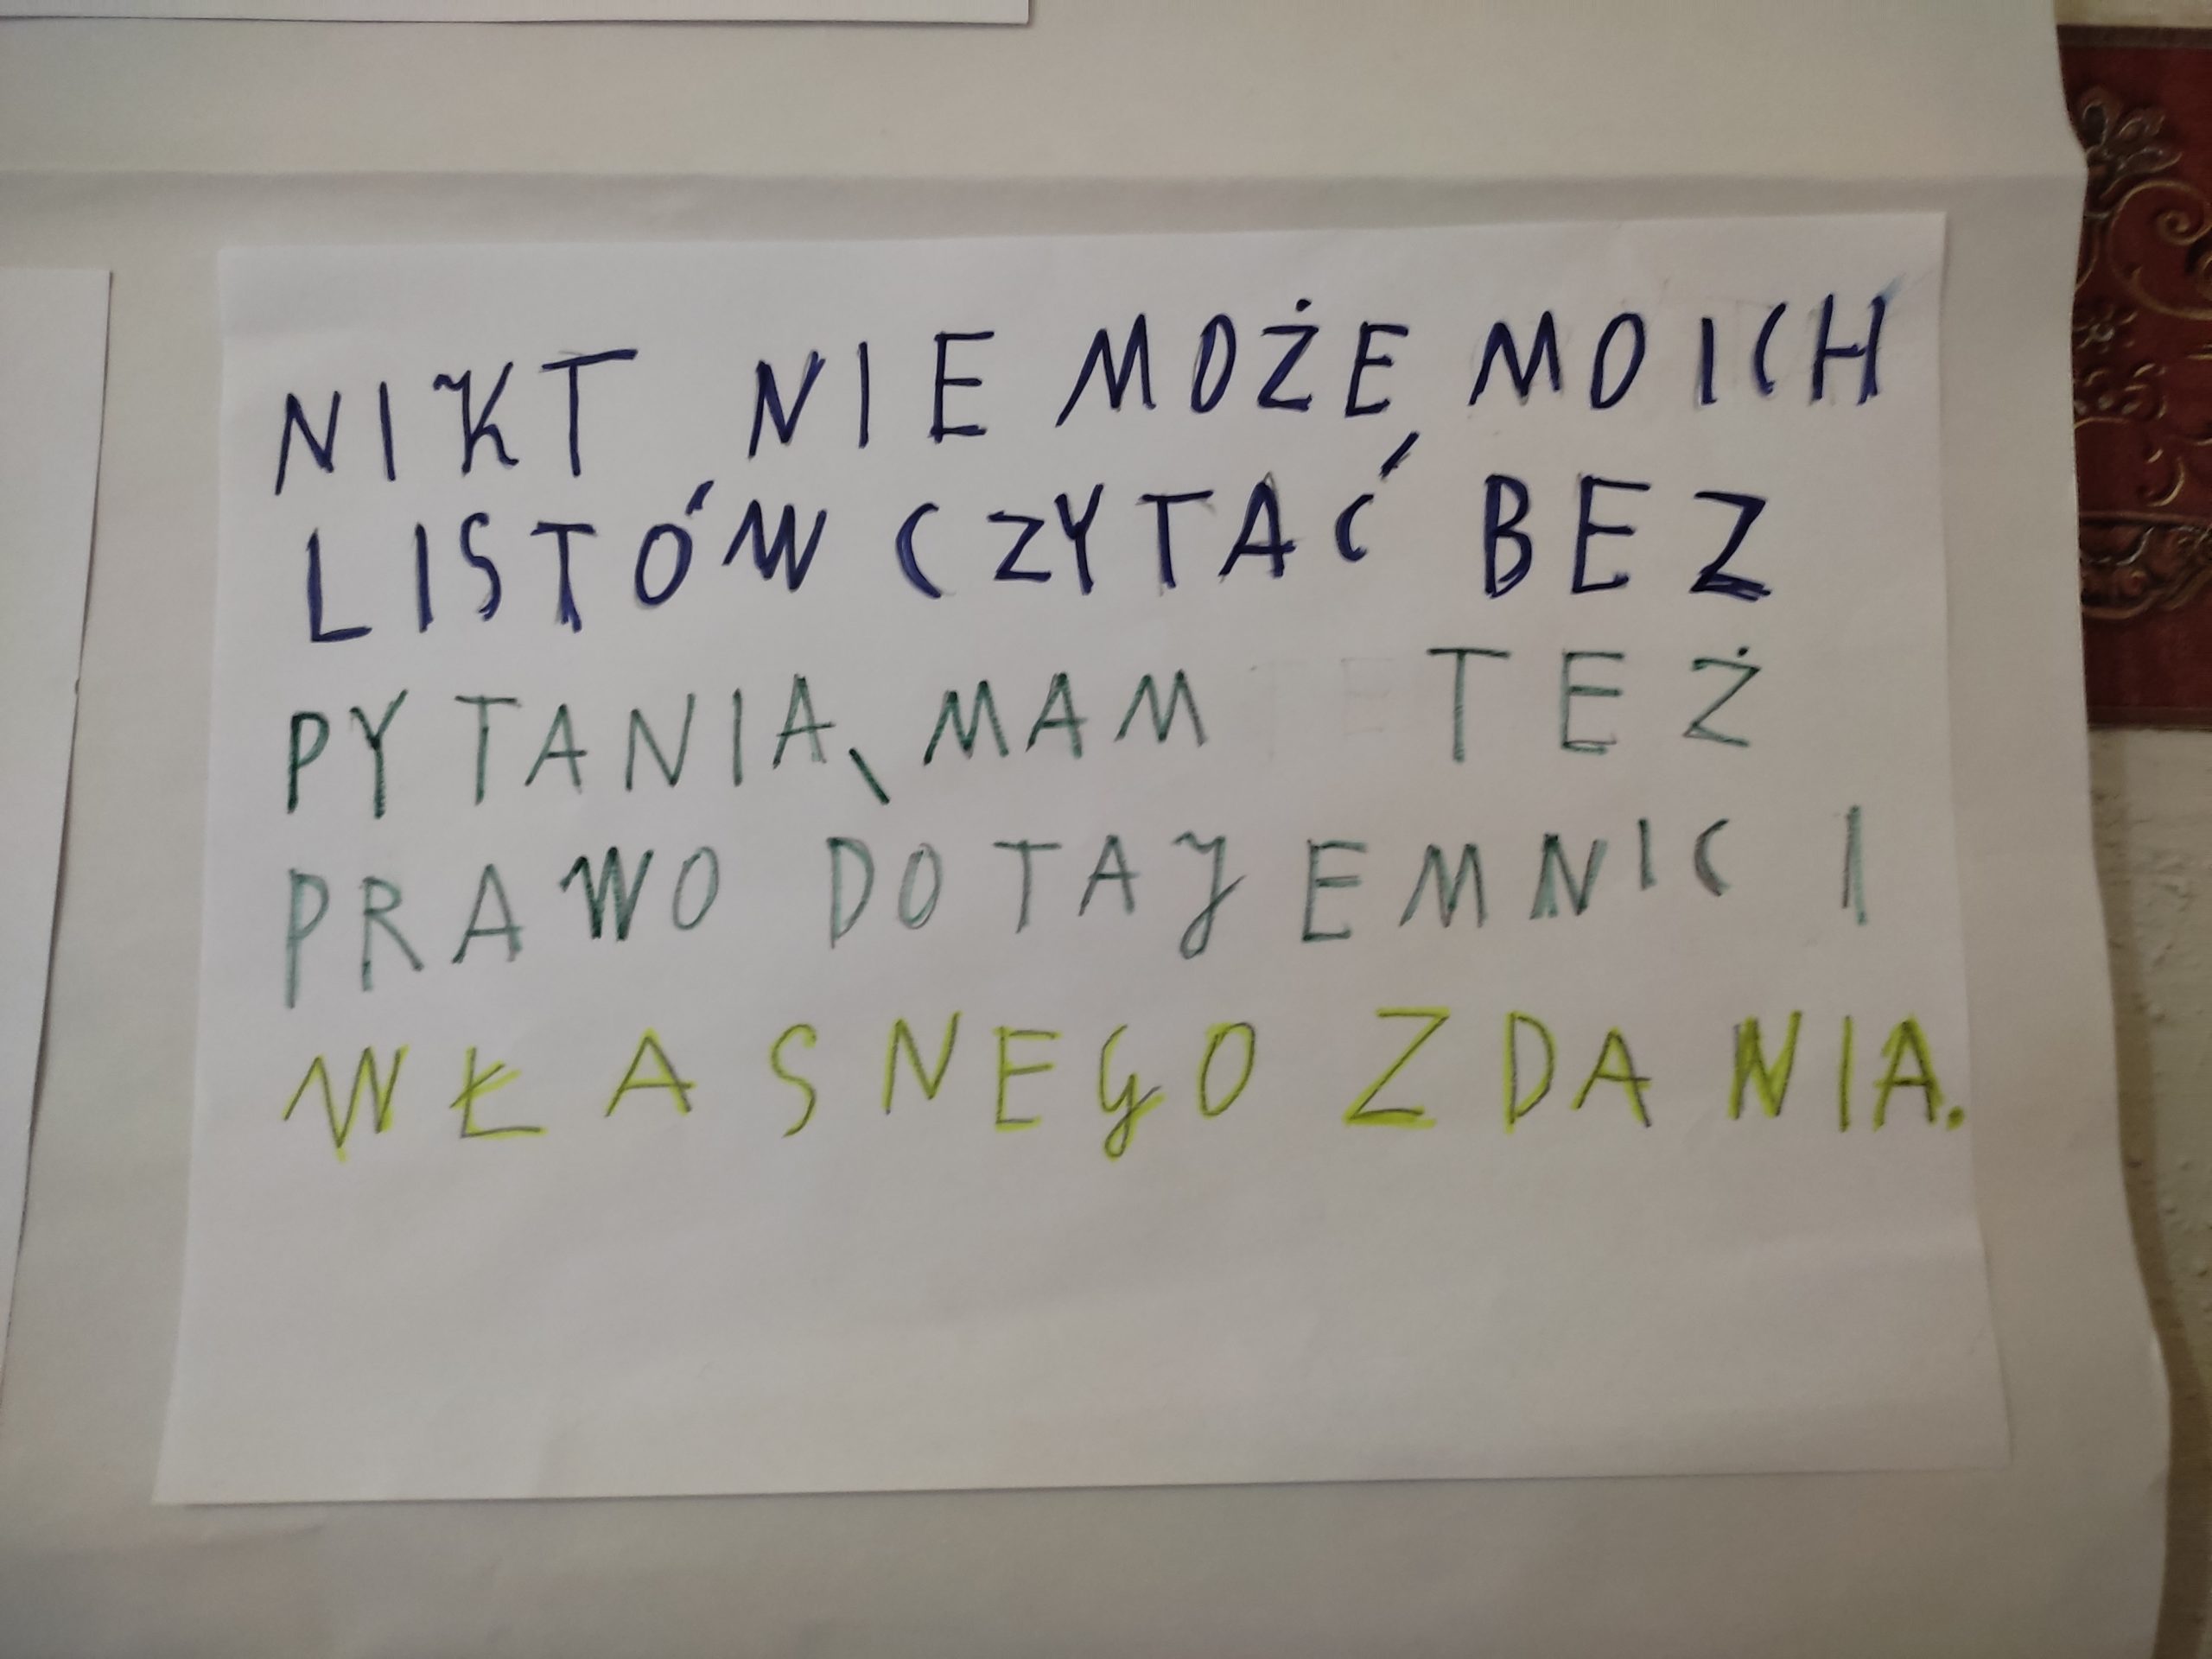 NIKT NIE MOŻE MOICH
LISTÓW CZYTAĆ BEZ
PYTANIA, MAM TEŻ
PRAWO DO TAJEMNIC I
WŁASNEGO ZDANIA.